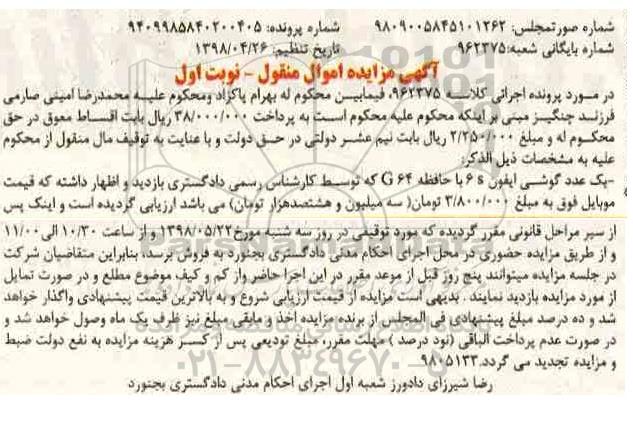 شماره صورتمجلس: ۹۸۰۹۰۰۵۸۴۵۱۰۱۲۶۲ شماره پرونده: ۹۴۰۹۹۸۵۸۴۰۲۰۰۴۰۵
شماره بایگانی شعبه: ۹۶۲۳۷۵ تاریخ تنظیم: ۱۳۹۸/۰۴/۲۶
آگهی مزایده اموال منقول - نوبت اول
در مورد پرونده اجرائی کلاسه ۹۶۲۳۷۵، فیمابین محکوم له بهرام پاکزاد ومحکوم علیه محمدرضا امینی صارمی
فرزند چنگیز مبنی بر اینکه محکوم علیه محکوم است به پرداخت ۳۸/۰۰۰/۰۰۰ ریال بابت اقساط معوق در حق
محکوم له و مبلغ ۲/۲۵۰/۰۰۰ ریال بابت نیم عشر دولتی در حق دولت و با عنایت به توقیف مال منقول از محکوم
علیه به مشخصات ذیل الذکر:
-یک عدد گوشی ایفون 6s با حافظه ۶۴ G که توسط کارشناس رسمی دادگستری بازدید و اظهار داشته که قیمت
موبایل فوق به مبلغ ۳/۸۰۰/۰۰۰ تومان( سه میلیون و هشتصدهزار تومان) می باشد ارزیابی گردیده است و اینک پس
از سیر مراحل قانونی مقرر گردیده که مورد توقیفی در روز سه شنبه مورخ ۱۳۹۸/۰۵/۲۲ و از ساعت ۱۰/۳۰ الی ۱۱/۰۰
و از طریق مزایده حضوری در محل اجرای احکام مدنی دادگستری بجنورد به فروش برسد، بنابراین متقاضیان شرکت
در جلسه مزایده میتوانند پنج روز قبل از موعد مقرر در این اجرا حاضر واز کم و کیف موضوع مطلع و در صورت تمایل
از مورد مزایده بازدید نمایند . بدیهی است مزایده از قیمت ارزیابی شروع و به بالاترین قیمت پیشنهادی واگذار خواهد
شد و ده درصد مبلغ پیشنهادی فی المجلس از برنده مزایده اخذ و مابقی مبلغ نیز ظرف یک ماه وصول خواهد شد و
در صورت عدم پرداخت الباقی (نود درصد ) مهلت مقرر، مبلغ تودیعی پس از کسر هزینه مزایده به نفع دولت ضبط
و مزایده تجدید می گردد. ۹۸۰۵۱۳۳
رضا شیرزای دادورز شعبه اول اجرای احکام مدنی دادگستری بجنورد
ParsNamadData
۰۲۱-۸۸۳۴۹۶۷۰-۵